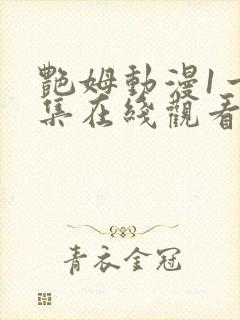 艷姆動漫1一
集在綫觀看
青衣金冠